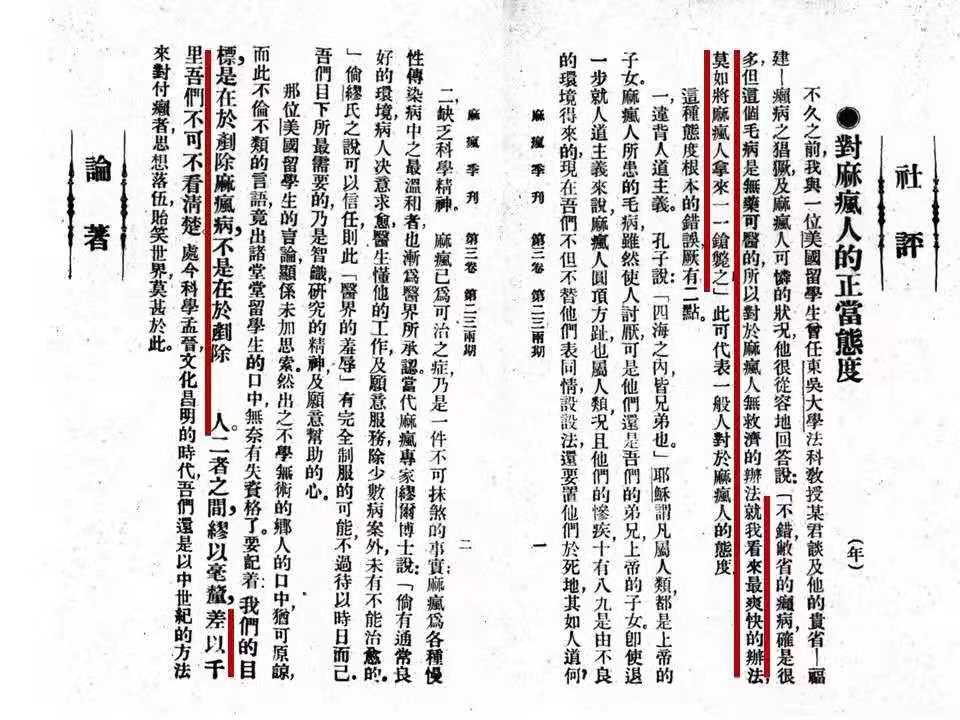 社評
●對麻瘋人的正當態度 (年)
不久之前,我與一位美國留學生曾任東吳大學法科敎授某君談及他的貴省—福
建—癩病之猖獗,及麻瘋人可憐的狀况,他很從容地回答說:「不錯,敝省的癩病確是很
多,但這個毛病是無藥可醫的,所以對於麻瘋人無救濟的辦法,就我看來,最爽快的辦法,
莫如將麻瘋人拿來一一鎗斃之」此可代表一般人對於麻瘋人的態度
這種態度根本的錯誤,厥有二點。
一,違背人道主義。 孔子說:「四海之內皆兄弟也。」耶穌謂凡屬人類都是上帝的
子女。麻瘋人所患的毛病,雖然使人討厭,可是他們還是吾們的弟兄,上帝的子女。卽使退
一步就人道主義來說,麻瘋人圓頂方趾,也屬人類,况且他們的慘疾十有八九是由不良
的環境得來的,現在吾們不但不替他們表同情,設設法,還要置他們於死地,其如人道何,
麻瘋季刊 第三卷 第二三兩期 一
麻瘋季刊 第三卷 第二三兩期 二
二,缺乏科學精神。 麻瘋已爲可治之症,乃是一件不可抹煞的事實;麻瘋爲各種慢
性傳染病中之最溫和者,也漸爲醫界所承認。當代麻瘋專家繆爾博士說:「倘有通常良
好的環境,病人决意求愈,醫生懂他的工作,及願意服務,除少數病案外,未有不能治愈的。
」倘繆氏之說可以信任,則此「醫界的羞辱」有完全制服的可能,不過待以時日而己。
吾們目下所最需要的,乃是智識,研究的精神,及願意幫助的心。
那位美國留學生的言論,顯係未加思索。然出之不學無術的鄉人的口中,猶可原諒,
而此不倫不類的言語,竟出諸堂堂留學生的口中,無奈有失資格了。要記着:我們的目
標是在於剷除麻瘋病,不是在於剷除 人。二者之間,繆以毫釐,差以千
里,吾們不可不看淸楚。處今科學孟晉,文化昌明的時代,吾們還是以中世紀的方法
來對付癩者,思想落伍,貽笑世界,莫甚於此。
論著